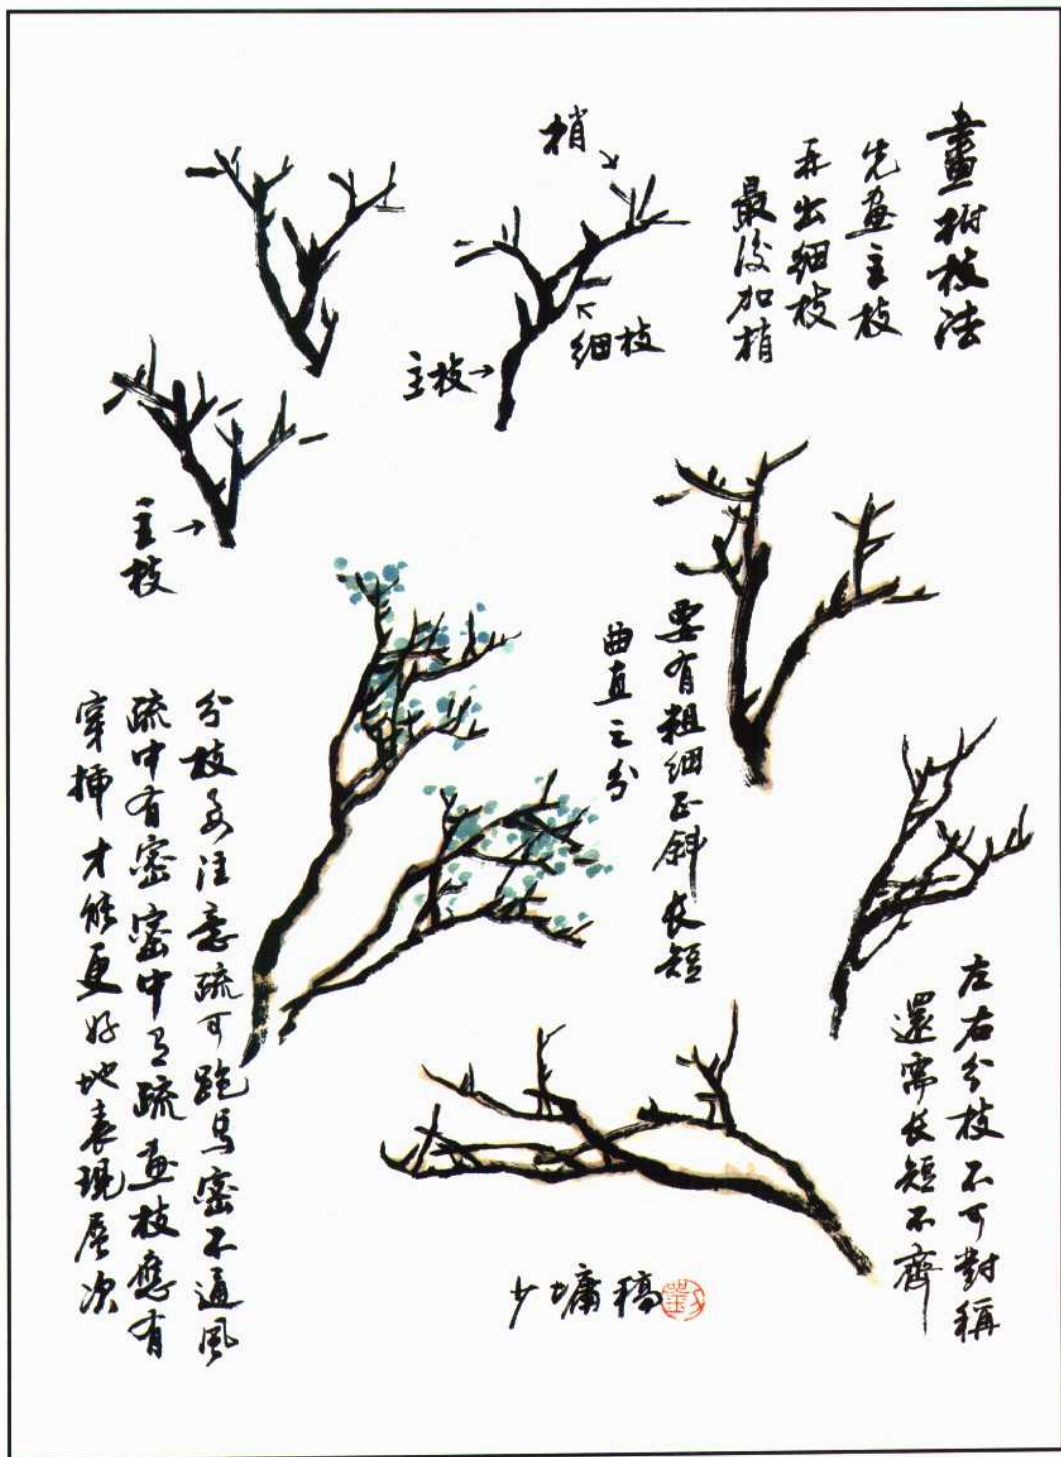 畫樹枝法
先画主枝
再出細枝
最後加梢
梢
細枝
主枝
主枝
要有粗細正斜長短
曲直之分
左右分枝不可對稱
還需長短不齊
分枝要注意疏可跑馬密不通風
疏中有密密中有疏画枝應有
穿插才能更好地表現層次
少墉稿